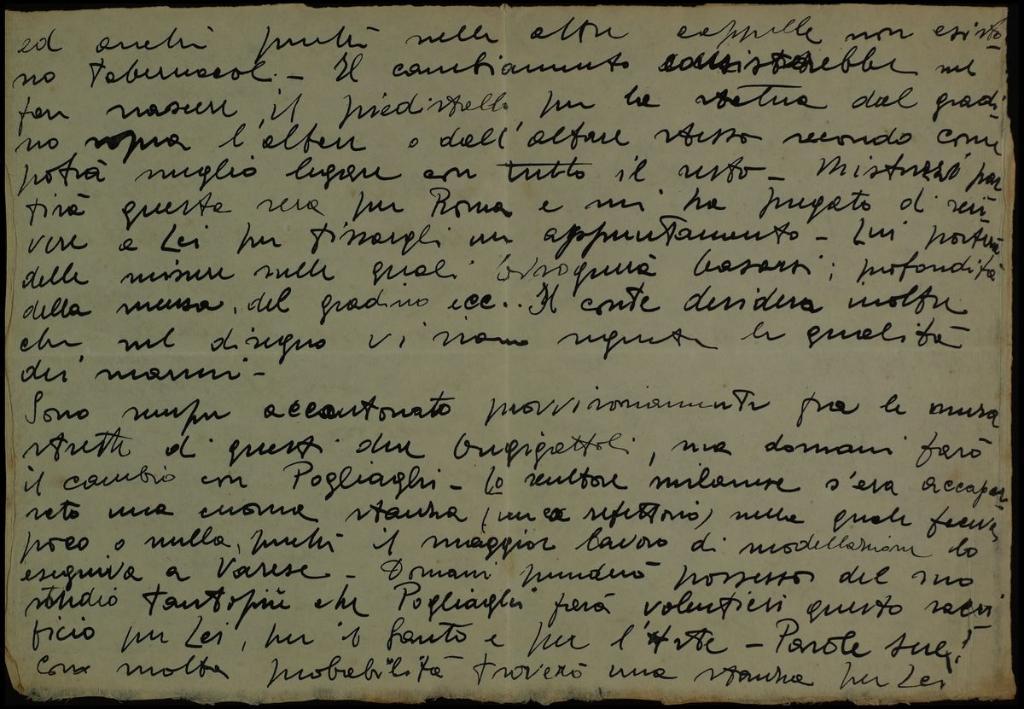 ed anche perché nelle altre cappelle non esisto-
no tabernacoli. - Il cambiamento consisterebbe nel
far nascere il piedistallo per la statua dal gradi-
no sopra l'altare o dall'altare stesso secondo come
potrà meglio legare con tutto il resto - Mistruzzi par
tirà questa sera per Roma e mi ha pregato di scri
vere a Lei per fissargli un appuntamento - Lui porterà
delle misure sulle quali bisognerà basarsi; profondità
della mensa, del gradino ecc.. Il conte desidera inoltre
che nel disegno vi siano segnate le qualità
dei marmi -
Sono sempre accantonato provvisoriamente fra le mura
strette di questi due bugigattoli, ma domani farò
il cambio con Pogliaghi - Lo scultore milanese s'era accapar-
rato una enorme stanza (un ex refettorio) nella quale faceva
poco o nulla, perché il maggior lavoro di modellazione lo
eseguiva a Varese - Domani prenderò possesso del suo
studio tantopiù che Pogliaghi farà volentieri questo sacri
ficio per Lei, per il Santo e per l'Arte - Parole sue!
Con molta probabilità troverò una stanza per Lei